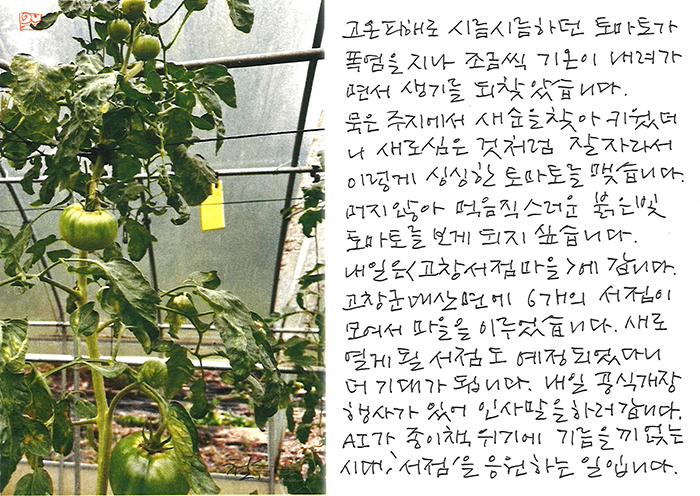 고온피해로 시름시름하던 토마토가
폭염을 지나 조금씩 기온이 내려가
면서 생기를 되찾았습니다.
묵은 주지에서 새순을 찾아 키웠더
니 새로심은 것처럼 잘 자라서
이렇게 싱싱한 토마토를 맺습니다.
머지않아 먹음직스러운 붉은빛
토마토를 보게 되지 싶습니다.
내일은 <고창서점마을>에 갑니다.
고창군 대산면에 6개의 서점이
모여서 마을을 이루었습니다. 새로
열게 될 서점도 예정되었다니
더 기대가 됩니다. 내일 공식개장
행사가 있어 인사말을 하러 갑니다.
AI가 종이책 위기에 기름을 끼얹는
시대, '서점'을 응원하는 일입니다.